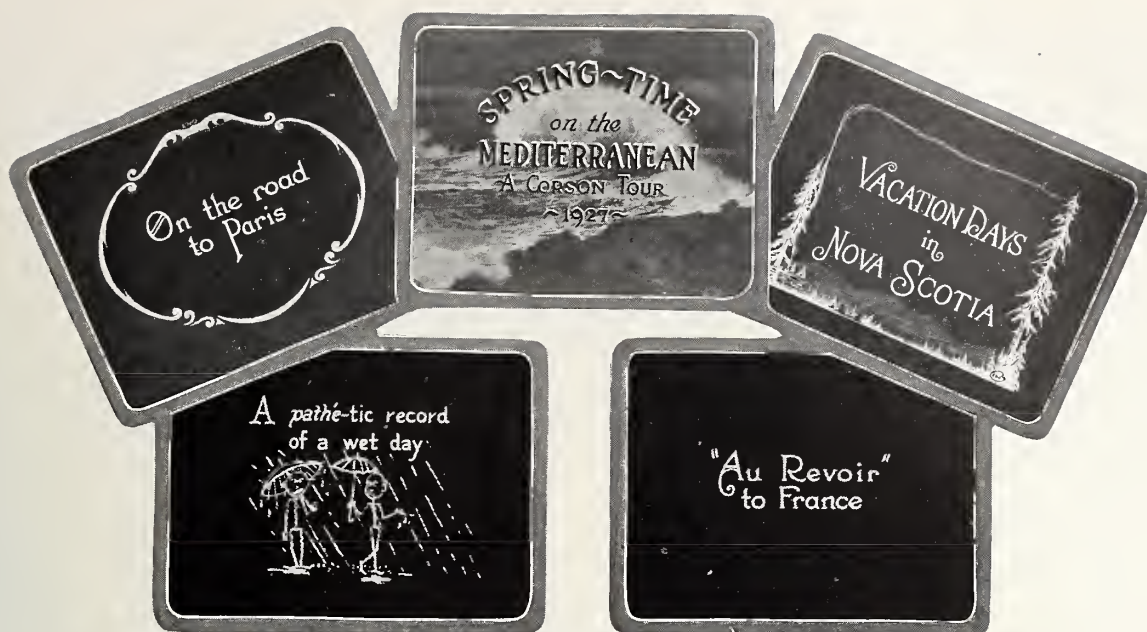 On the road
to Paris
SPRING~TIME
on the
MEDITERRANEAN
A CORSON TOUR
~1927~
VACATION DAYS
in
NOVA SCOTIA
A pathé-tic record
of a wet day
"Au Revoir"
to France